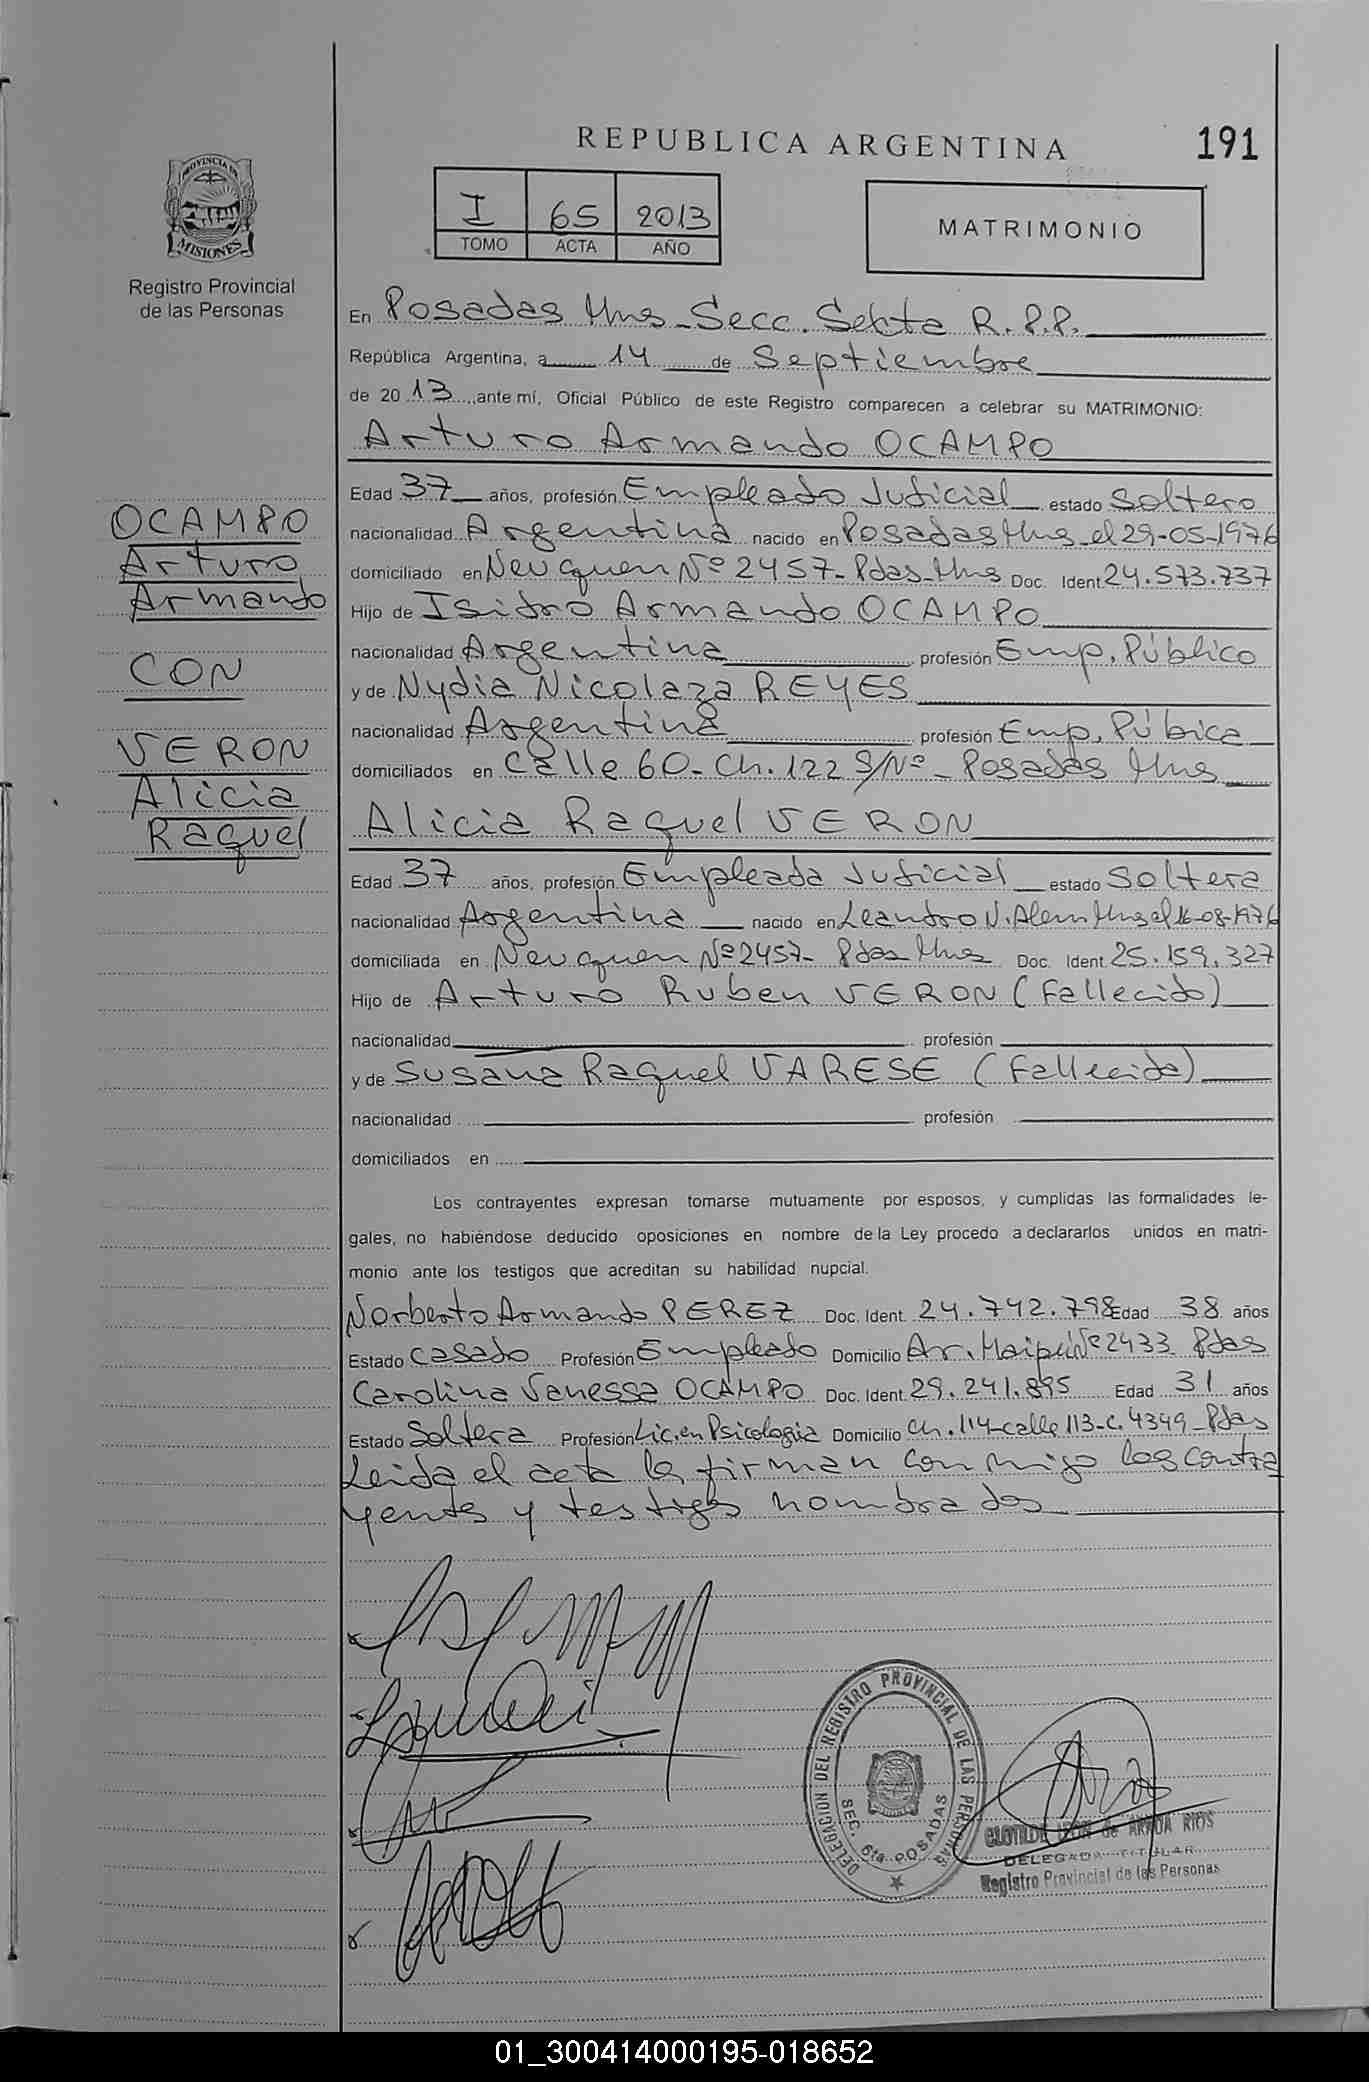 REPUBLICA ARGENTINA
191
PROVINCIA DE
MISIONES
Registro Provincial
de las Personas
I 65 2013
TOMO ACTA AÑO
MATRIMONIO
En Posadas Mns - Secc. Sexta R.P.P.
República Argentina, a 14 de Septiembre
de 2013, ante mí, Oficial Público de este Registro comparecen a celebrar su MATRIMONIO:
Arturo Armando OCAMPO
Edad 37 años, profesión Empleado Judicial estado Soltero
nacionalidad Argentina nacido en Posadas Mns el 29-05-1976
domiciliado en Neuquen Nº 2457- Pdas-Mns Doc. Ident. 24.573.737
Hijo de Isidro Armando OCAMPO
nacionalidad Argentina profesión Emp. Público
y de Nydia Nicolaza REYES
nacionalidad Argentina profesión Emp. Púbica
domiciliados en Calle 60- Ch. 122 S/Nº - Posadas Mns
OCAMPO
Arturo
Armando
CON
VERON
Alicia
Raquel
Alicia Raquel VERON
Edad 37 años, profesión Empleada Judicial estado Soltera
nacionalidad Argentina nacido en Leandro N. Alem Mns el 16-08-1976
domiciliada en Neuquen Nº 2457- Pdas Mns Doc. Ident. 25.159.327
Hijo de Arturo Ruben VERON (Fallecido)
nacionalidad profesión
y de Susana Raquel VARESE (Fallecida)
nacionalidad profesión
domiciliados en
Los contrayentes expresan tomarse mutuamente por esposos, y cumplidas las formalidades le-
gales, no habiéndose deducido oposiciones en nombre de la Ley procedo a declararlos unidos en matri-
monio ante los testigos que acreditan su habilidad nupcial.
Norberto Armando PEREZ Doc. Ident. 24.742.798 Edad 38 años
Estado Casado Profesión Empleado Domicilio Av. Maipú Nº 2433 Pdas
Carolina Vanessa OCAMPO Doc. Ident. 29.241.895 Edad 31 años
Estado Soltera Profesión Lic. en Psicologia Domicilio Ch. 114-calle 113-C. 4349-Pdas
Leida el acta la firman conmigo los contra
yentes y testigos nombrados
DELEGACION DEL REGISTRO PROVINCIAL DE LAS PERSONAS
SEC. 6ta. POSADAS
CLOTILDE LEON de ARRUA RIOS
DELEGADA TITULAR
Registro Provincial de las Personas
01_300414000195-018652